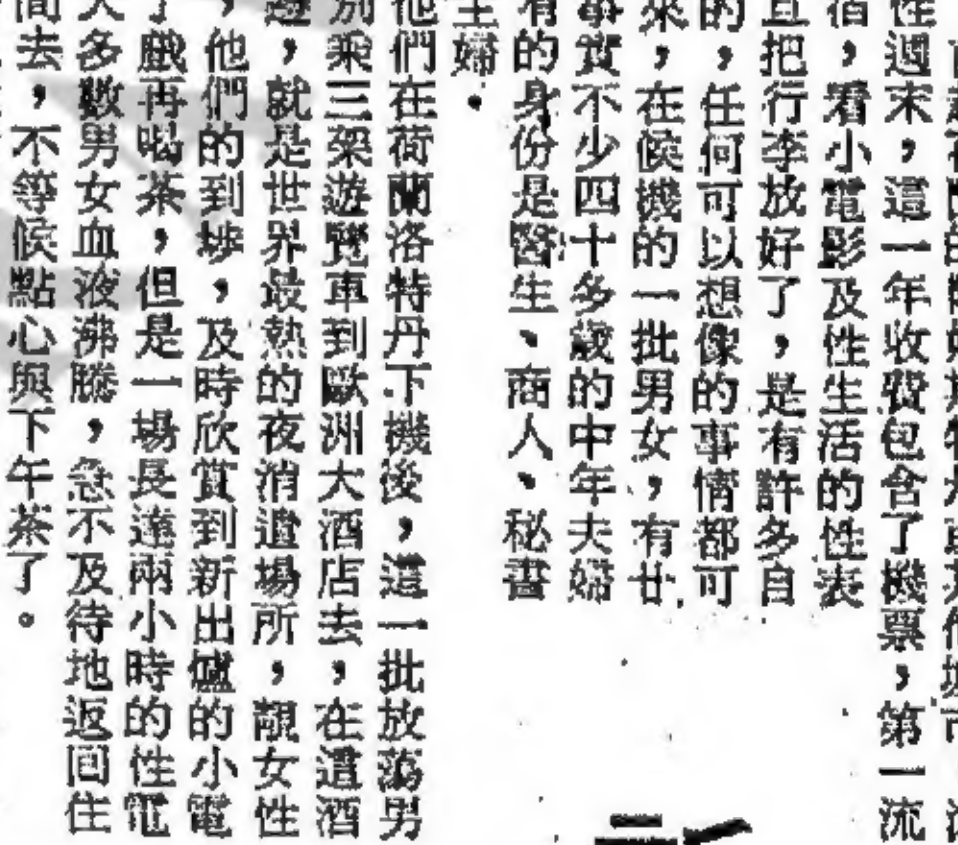 性週末，這一年收費包含了機票，第一流
宿，看小電影及性生活的性表
且把行李放好了，是有許多自
的，任何可以想像的事情都可
來，在候機的一批男女，有廿
事實不少四十多歲的中年夫婦
有的身份是醫生、商人、秘書
主婦．
他們在荷蘭洛特丹下機後，這一批放蕩男
別乘三架遊覽車到歐洲大酒店去，在這酒
，就是世界最熱的夜消遣場所，靚女性
，他們的到埗，及時欣賞到新出爐的小電
了戲再喝茶，但是一場長達兩小時的性電
大多數男女血液沸騰，急不及待地返回住
間去，不等候點心與下午茶了。